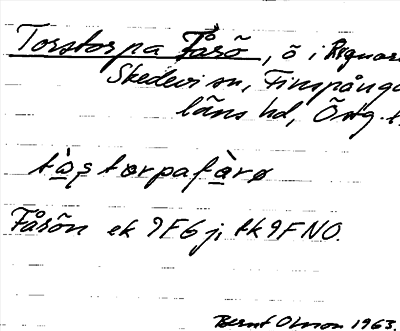 Torstorpa Fårö, ö i Regnaren
Skedevi sn, Finspånga
läns hd, Östg.
tò̩ʂtorpafàrø
Fårön ek 9F6j, tk 9FNO.
Bernt Olsson 1963.